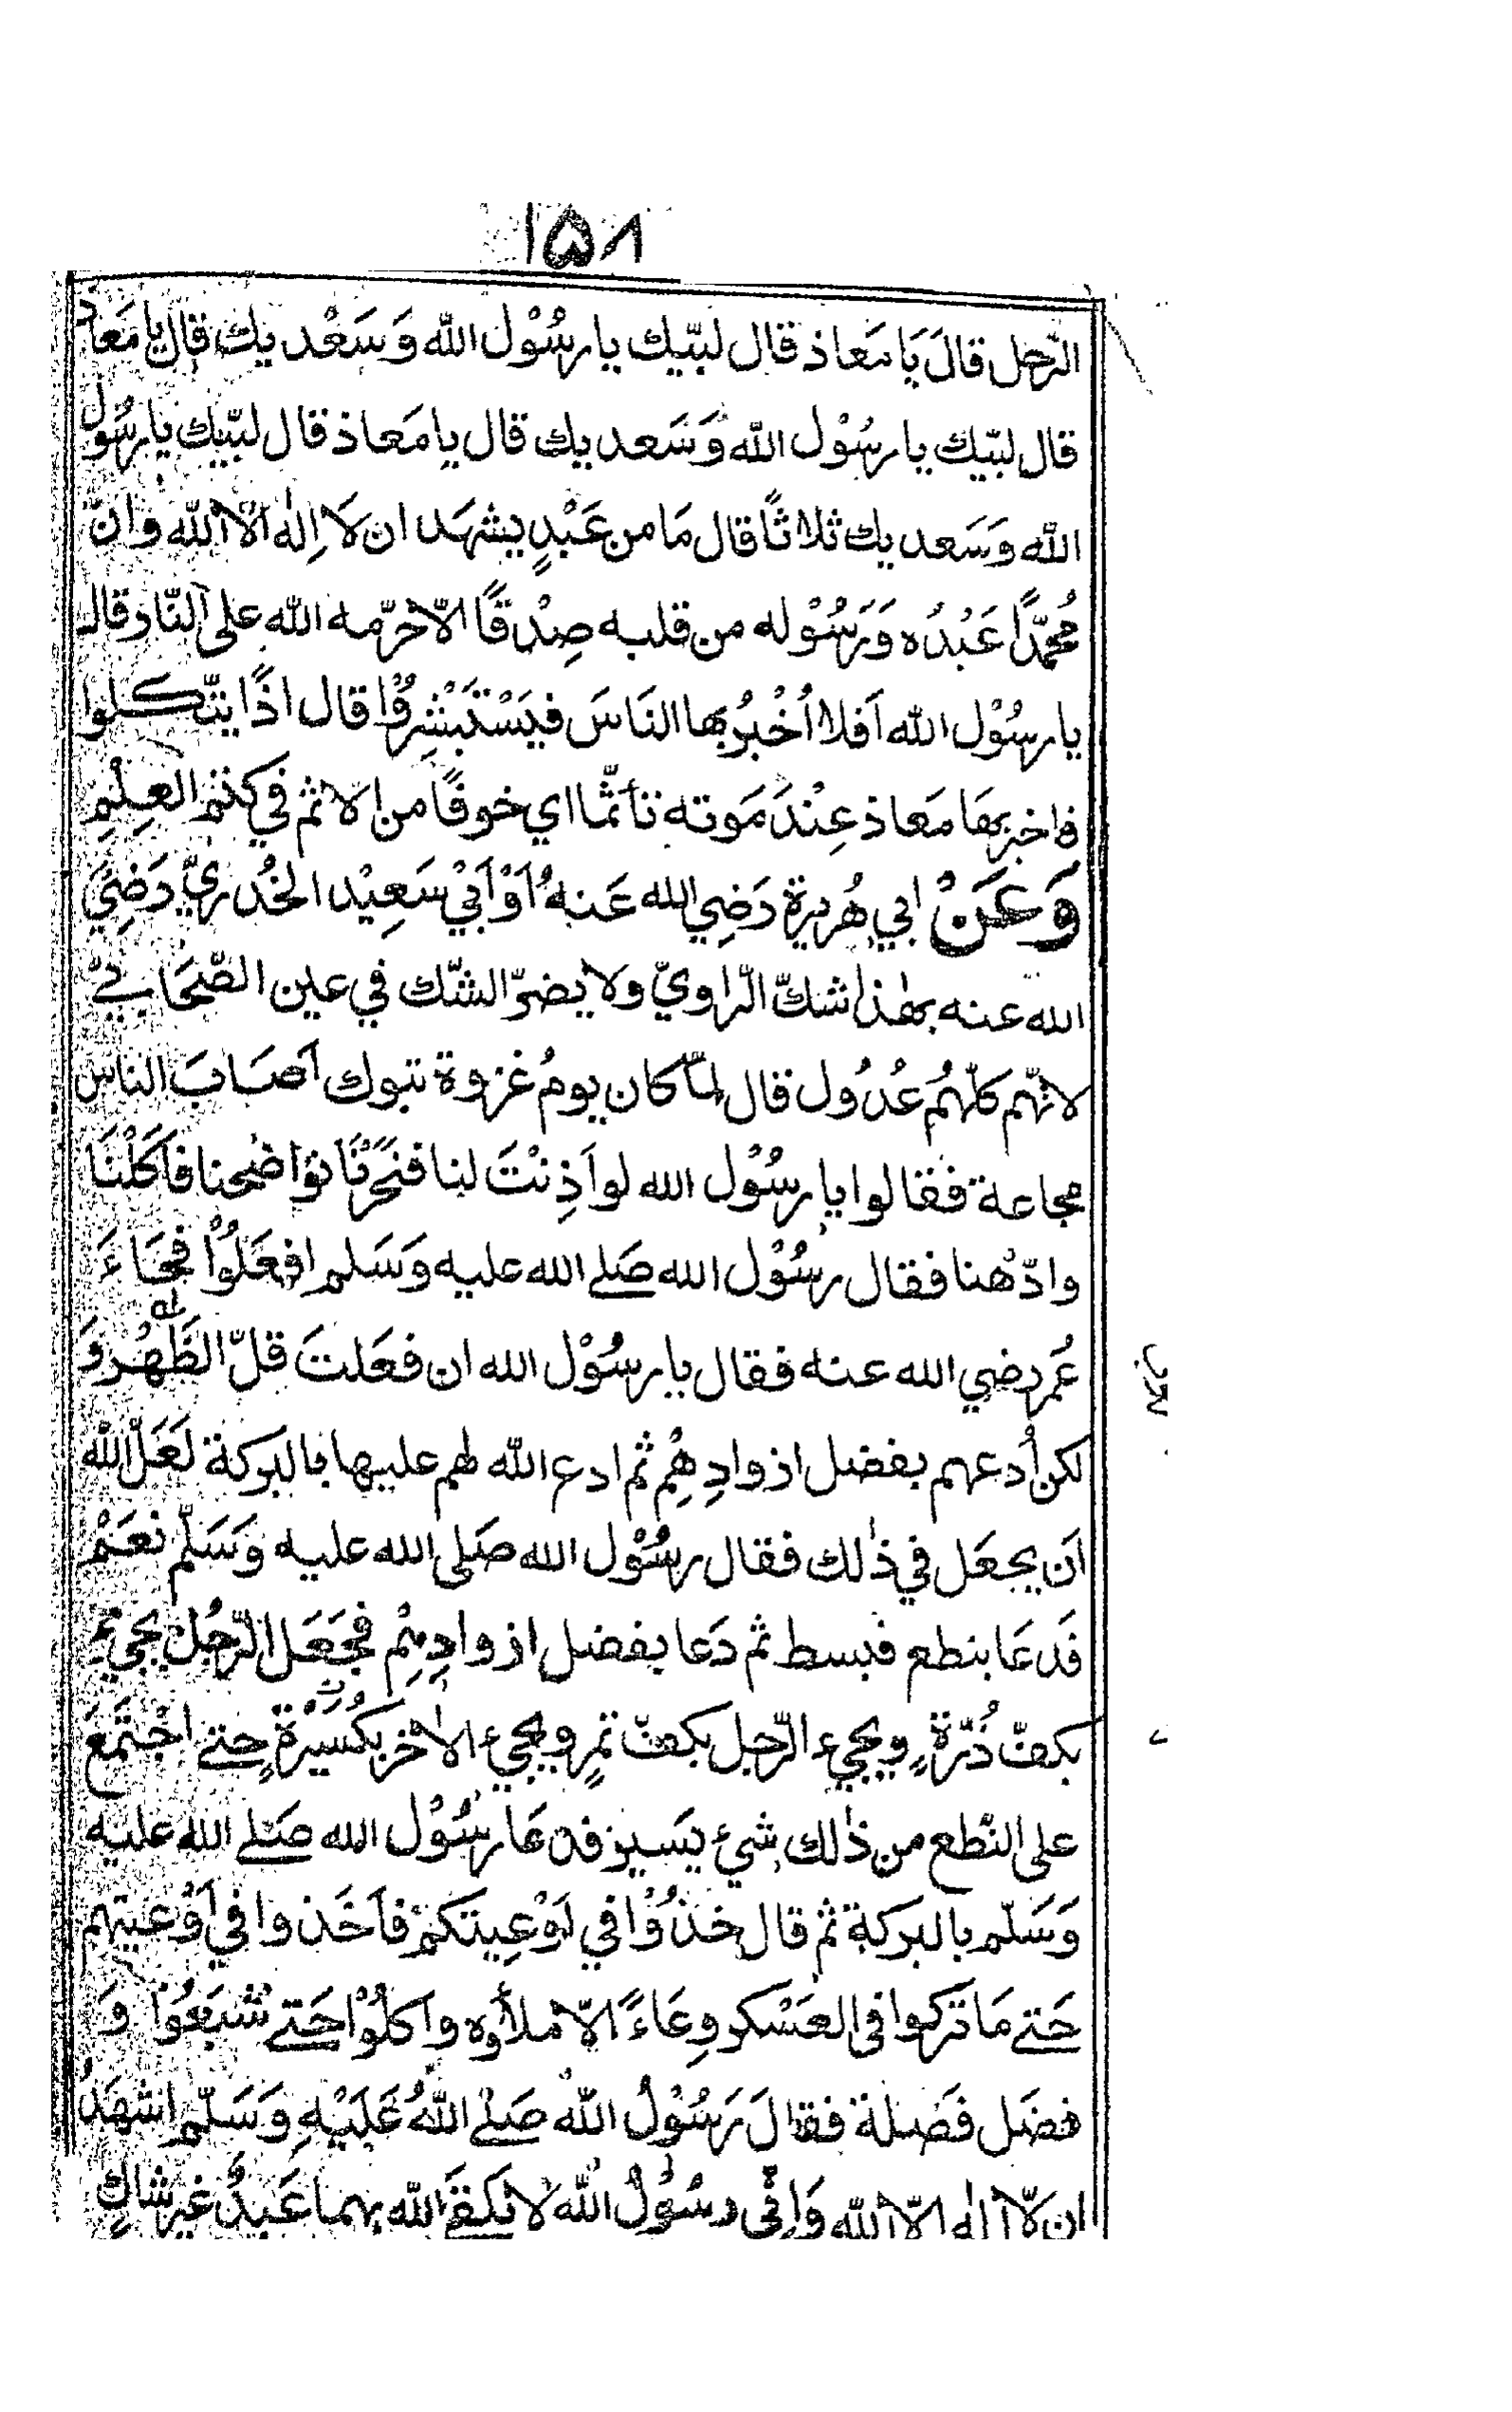 ١٥٨
الرّحل قالَ يَا مَعاذ قال لبّيك يا رسُوْل الله وَسَعْديك قال يا مَعاذ
قال لبّيك يا رسُوْل الله وَسَعديك قال يا مَعاذ قال لبّيك يا رسُول
الله وَسَعديك ثلاثًا قال مَا من عَبْدٍ يشهَد ان لَا اِلٰه الّا الله وانّ
مُحمّدًا عَبْدُه وَرَسُوْله من قلبه صِدْقًا الّا حَرّمه الله على النّار قال
يا رسُوْل الله اَفلا اُخْبرُ بها النَاسَ فيَسْتَبْشِرُوْا قال اذًا يتّكلوا
فاخبر بها مَعاذ عِنْدَ مَوته تأثّما اي خوفًا من الاثم في كتم العِلْمِ
وَعَنْ ابي هُريرة رَضِي الله عَنهُ اَوْ اَبيْ سَعِيْد الخُدريّ رَضِيَ
الله عنه بهٰذا شكّ الرّاويّ ولا يضرّ الشّك في عين الصّحَابيّ
لانّهم كلّهُم عُدُول قال لمّا كان يومُ غزوة تبوك اَصَابَ الناس
مجاعة فقالوا يا رسُوْل الله لو اَذِنْتَ لنا فنَحَرْنَا نوَاضحنا فاَكَلْنَا
وادّهنا فقال رسُوْل الله صَلى الله عليه وَسَلم افعَلُوْا فجَاءَ
عُمر رضي الله عنه فقال يا رسُوْل الله ان فعَلتَ قلّ الظَّهْر وَ
لكن اُدعهم بفضل ازوادِهِم ثم ادع الله لهم عليها بالبركة لَعَلّ الله
اَن يجعَل في ذٰلك فقال رسُوْل الله صَلى الله عليه وَسَلّم نعَمْ
فَدعَا بنطع فبسط ثم دَعا بفضل ازوادِهِم فجَعَل الرّجُل يجيء
بكفّ ذُرّةٍ ويجيء الرّجل بكفّ تمرٍ ويجيء الاٰخر بكُسَيْرَةٍ حتى اجْتمَعَ
على النّطع من ذٰلك شيء يَسير فدعَا رسُوْل الله صَلى الله عليه
وَسَلّم بالبركة ثم قال خذُوْا في اَوْعِيتكمْ فاَخَذوا في اَوْعيتهم
حَتى مَا تركوا فى العَسْكر وِعَاءً الّا ملأوه واَكلُوْا حَتى شبَعُوْا وَ
فضَل فَضلة فقالَ رَسُوْلُ الله صَلى اللهُ عَلَيْهِ وَسَلّم اشهَدُ
ان لّا اله الّا الله وَانّي رسُوْلُ الله لا يَلقَى الله بهما عَبدٌ غير شاكٍ